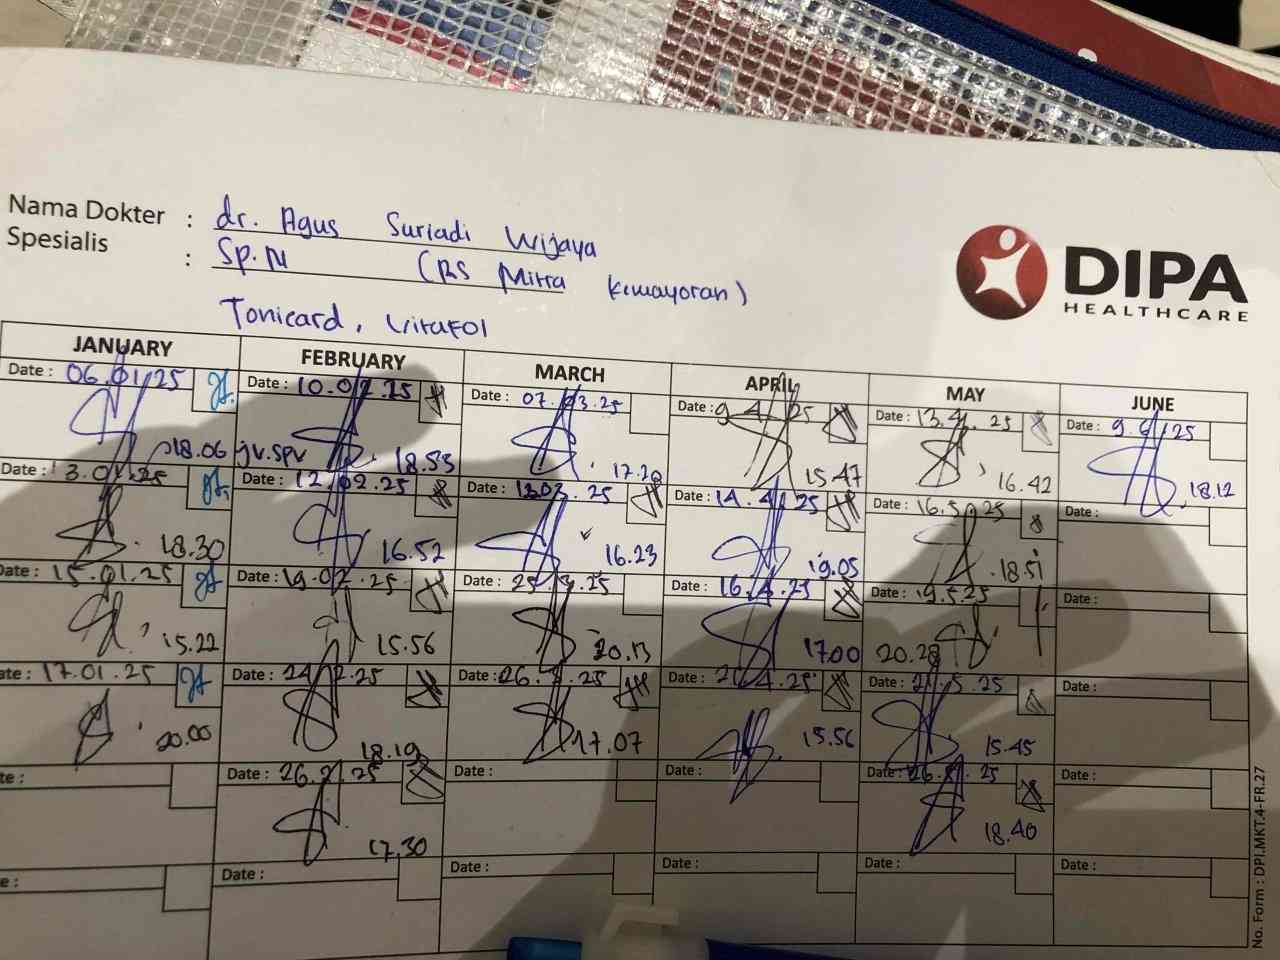 Nama Dokter : dr. Agus Suriadi Wijaya
Spesialis : Sp.N (RS Mitra Kemayoran)
Tonicard, Vitafol
DIPA
HEALTHCARE
JANUARY FEBRUARY MARCH APRIL MAY JUNE
Date : 06.01.25 Date : 10.02.25 Date : 07.03.25 Date : 9.4.25 Date : 13.4.25 Date : 9.6.25
18.06 jv.spv 18.53 17.20 15.47 16.42 18.12
Date : 13.01.25 Date : 12.02.25 Date : 13.03.25 Date : 14.4.25 Date : 16.5.25 Date :
18.30 16.52 16.23 19.05 18.51
Date : 15.01.25 Date : 19.02.25 Date : 25.3.25 Date : 16.4.25 Date : 19.5.25 Date :
15.22 15.56 20.13 17.00 20.28
ate : 17.01.25 Date : 24.2.25 Date : 26.3.25 Date : Date : Date :
20.00 18.19 17.07 15.56 15.45
te : Date : 26.2.25 Date : Date : Date : 26.5.25 Date :
17.30 18.40
e : Date : Date : Date : Date : Date :
No. Form : DPI.MKT.4-FR.27